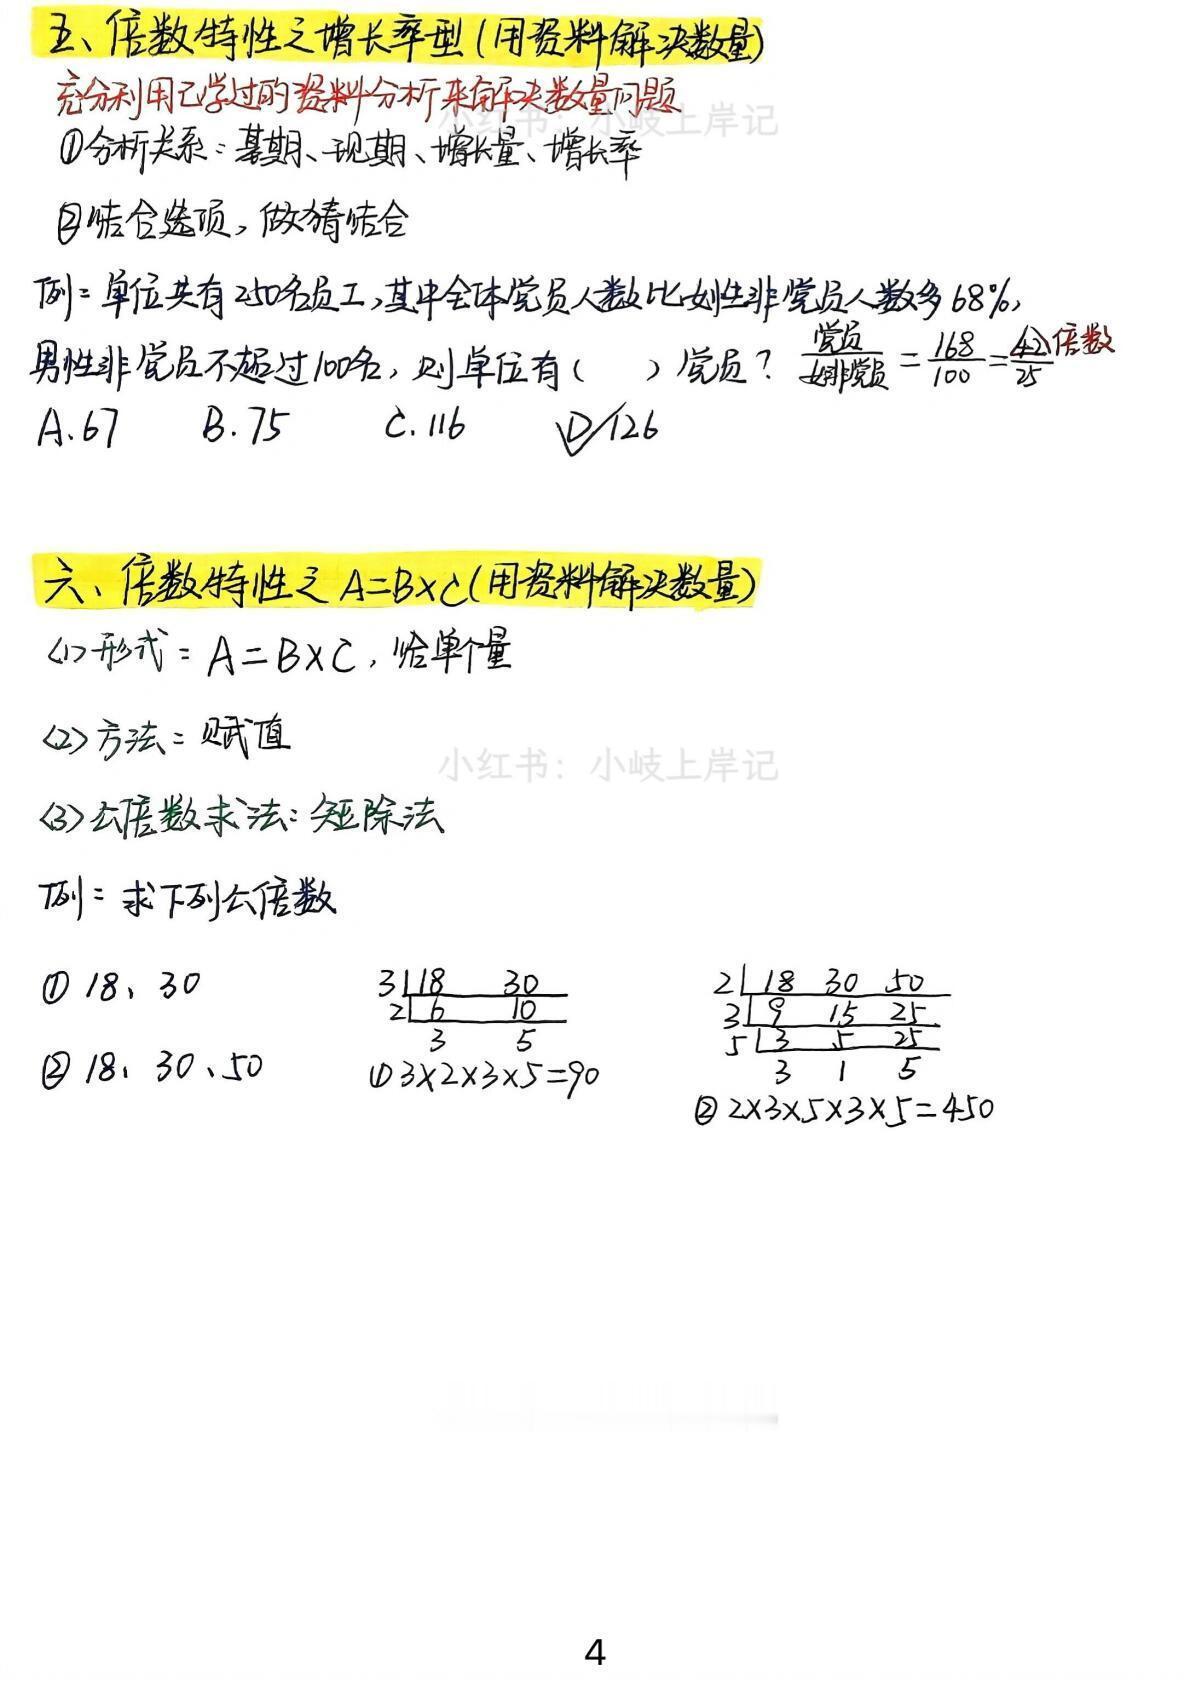 五、倍数特性之增长率型(用资料解决数量)
充分利用已学过的资料分析来解决数量问题
小红书：小岐上岸记
①分析关系：基期、现期、增长量、增长率
②结合选项，做猜结合
例：单位共有250名员工，其中全体党员人数比女性非党员人数多68%，
男性非党员不超过100名，则单位有( )党员？ 党员/女非党员 = 168/100 = 42/25 倍数
A.67 B.75 C.116 D.126
六、倍数特性之A=B×C(用资料解决数量)
<1>形式：A=B×C，给单个量
<2>方法：赋值
小红书：小岐上岸记
<3>公倍数求法：短除法
例：求下列公倍数
① 18、30
3 18 30
2 6 10
3 5
①3×2×3×5=90
2 18 30 50
3 9 15 25
5 3 5 25
3 1 5
②2×3×5×3×5=450
② 18、30、50
4